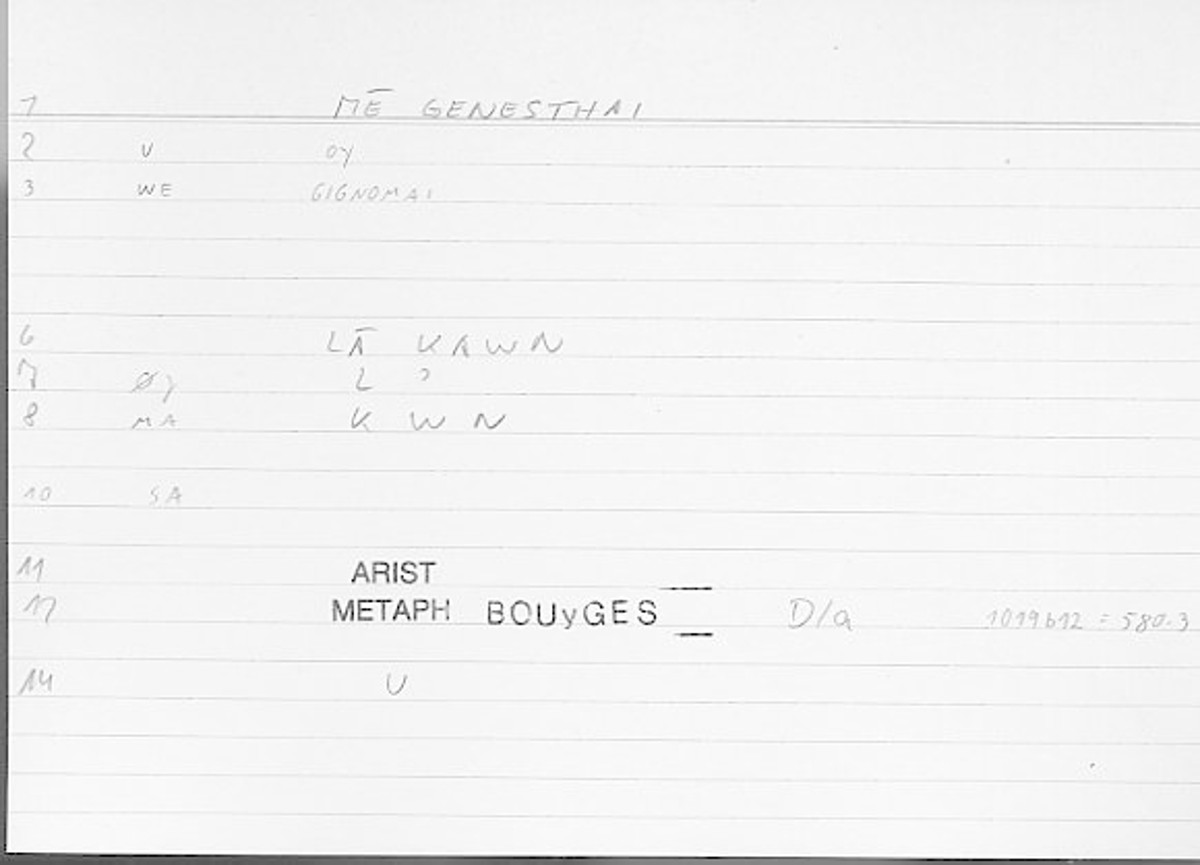 1 MĒ GENESTHAI
2 U OY
3 WE GIGNOMAI
6 LĀ KAWN
7 ØY L ʾ
8 MA K W N
10 SA
11 ARIST
12 METAPH BOUyGES D/a 1019b12 = 580.3
14 U